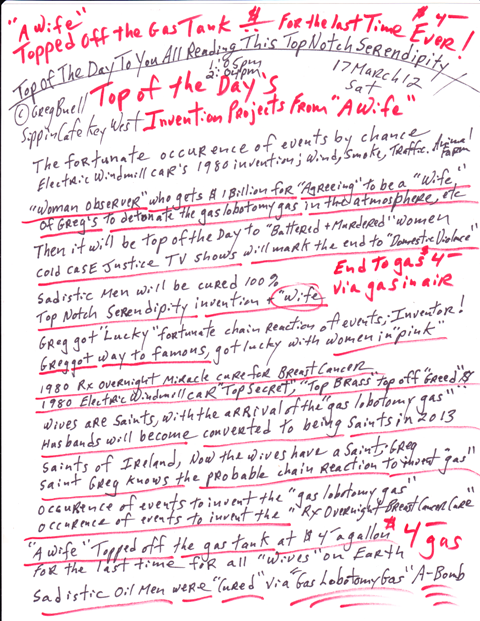 "A Wife" $ $4—
Topped Off the Gas Tank For the last Time Ever!
Top of The Day To You All Reading This Top Notch Serendipity
17 March 12
Sat
© Greg Buell Top of the Day's
Sippin Cafe Key West Invention Projects From "A Wife"
The fortunate occurence of events by chance
Electric Windmill car's 1980 invention; Wind, Smoke, Traffic. Animal Farm
"Woman observer" who gets $ 1 Billion for "Agreeing" to be a "Wife"
of Greg's to detonate the gas lobotomy gas in the atmosphere, etc
Then it will be Top of the Day to "Battered + Murdered" women
cold case Justice TV shows will mark the end to "Domestic Violence"
Sadistic Men will be cured 100% End To gas $4—
Top Notch Serendipity invention + "Wife Via gas in air
Greg got "Lucky" fortunate chain reaction of events; Inventor!
Greg got way to famous, got lucky with women in "pink"
1980 Rx overnight Miracle cure for Breast Cancer
1980 Electric Windmill car "Top Secret", "Top Brass" Top off "Greed" $
wives are Saints, with the arrival of the "gas lobotomy gas"
Husbands will become converted to being Saints in 2013
Saints of Ireland, Now the wives have a Saint; Greg
Saint Greg knows the probable chain reaction to invent gas"
occurence of events to invent the "gas lobotomy gas"
occurence of events to invent the "Rx Overnight Breast Cancer Cure"
"A Wife" Topped off the gas tank at $4— a gallon $4— gas
for the last time for all "Wives" on Earth
Sadistic Oil Men were "Cured" via "Gas Lobotomy Gas" A-Bomb